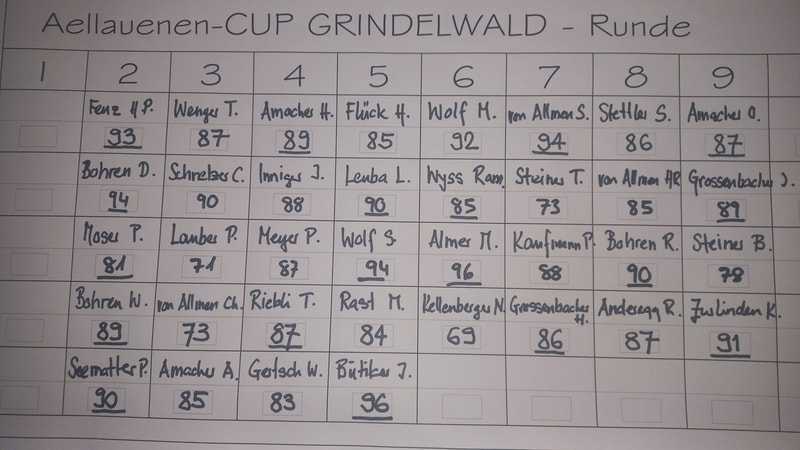 Aellauenen-CUP GRINDELWALD - Runde
1 2 3 4 5 6 7 8 9
Fenz H.P. Wenger T. Amacher H. Flück H. Wolf M. von Allmen S. Stettler S. Amacher O.
93 87 89 85 92 94 86 87
Bohren D. Schnelzer C. Inniger J. Leuba L. Wyss Ram. Steiner T. von Allmen HR Grossenbacher J.
94 90 88 90 85 73 85 89
Moser P. Lauber P. Meyer P. Wolf S. Almer M. Kaufmann P. Bohren R. Steiner B.
81 71 87 94 96 88 90 78
Bohren W. von Allmen Ch. Riebli T. Rast M. Kellenberger N. Grossenbacher H. Anderegg R. Zurlinden K.
89 73 87 84 69 86 87 91
Seematter P. Amacher A. Gertsch W. Bütiker J.
90 85 83 96